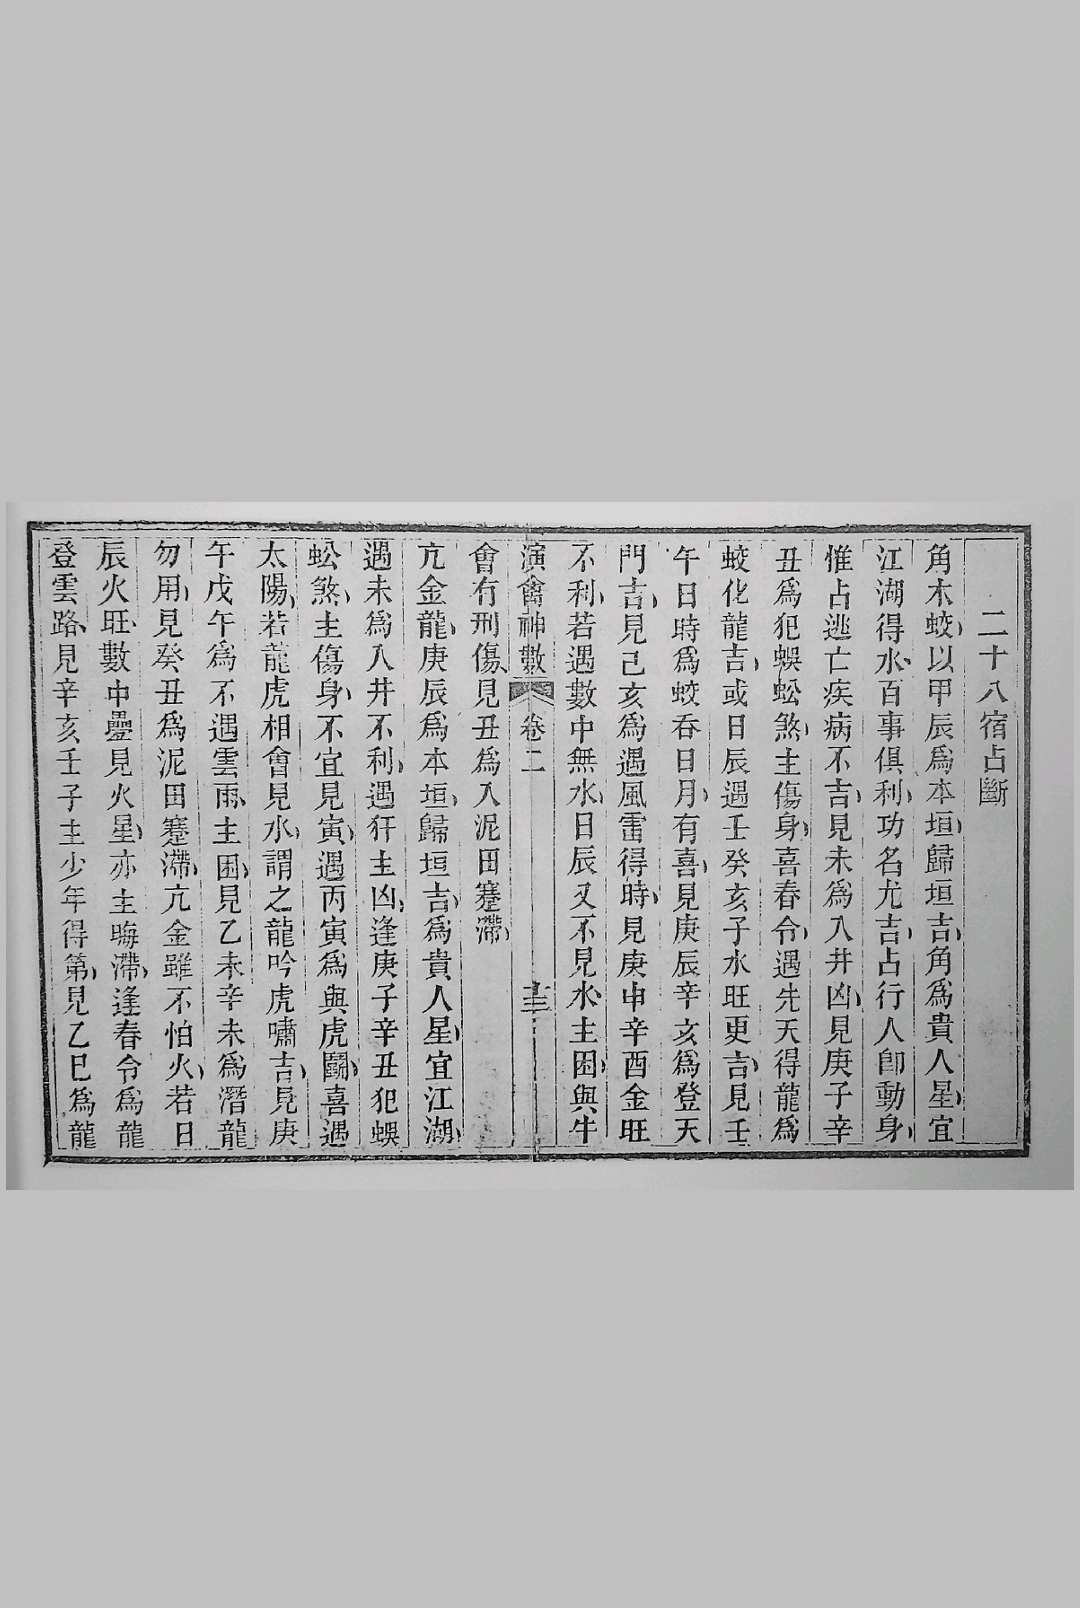 二十八宿占斷
角木蛟以甲辰爲本垣歸垣吉角爲貴人星宜
江湖得水百事俱利功名尤吉占行人卽動身
惟占逃亡疾病不吉見未爲入井凶見庚子辛
丑爲犯蜈蚣煞主傷身喜春令遇先天得龍爲
蛟化龍吉或日辰遇壬癸亥子水旺更吉見壬
午日時爲蛟吞日月有喜見庚辰辛亥爲登天
門吉見己亥爲遇風雷得時見庚申辛酉金旺
不利若遇數中無水日辰又不見水主困與牛
演禽神數 卷二 十三
會有刑傷見丑爲入泥田蹇滯
亢金龍庚辰爲本垣歸垣吉爲貴人星宜江湖
遇未爲入井不利遇犴主凶逢庚子辛丑犯蜈
蚣煞主傷身不宜見寅遇丙寅爲與虎鬭喜遇
太陽若龍虎相會見水謂之龍吟虎嘯吉見庚
午戊午爲不遇雲雨主困見乙未辛未爲潛龍
勿用見癸丑爲泥田蹇滯亢金雖不怕火若日
辰火旺數中疊見火星亦主晦滯逢春令爲龍
登雲路見辛亥壬子主少年得第見乙巳爲龍